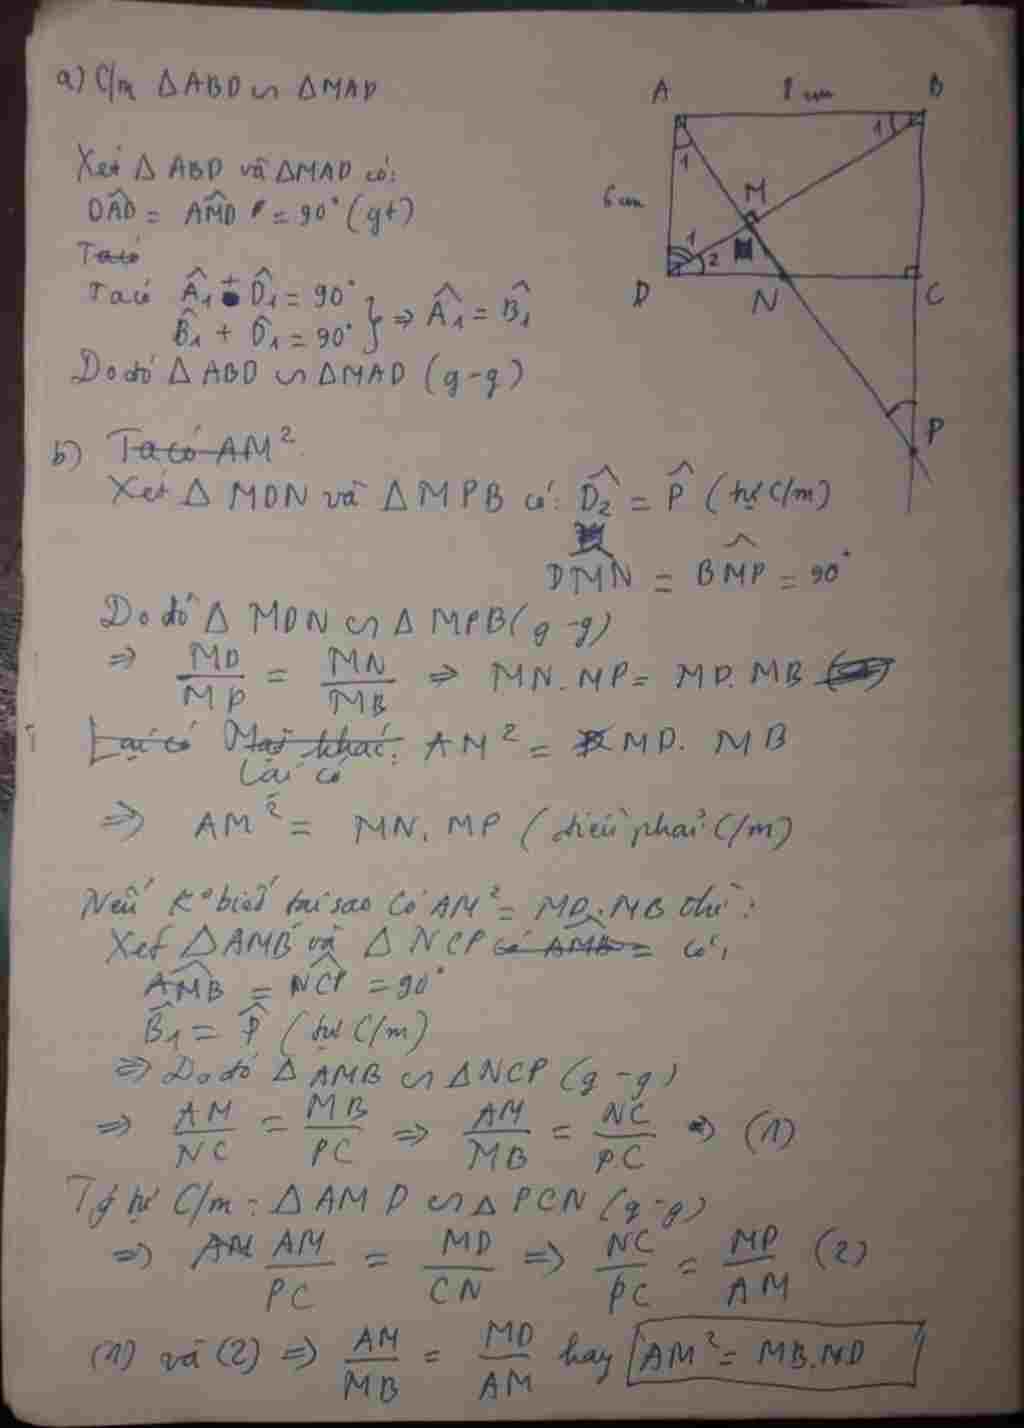 a) C/m Δ ABD ∽ Δ MAD
A 8 cm B
Xét Δ ABD và Δ MAD có:
DAD̂ = AMD̂ = 90° (gt)
6 cm
Ta có
Ta có Â₁ + D̂₁ = 90°
B̂₁ + D̂₁ = 90° } ⇒ Â₁ = B̂₁
M
1
1
1
2
D N C
P
Do đó Δ ABD ∽ Δ MAD (g-g)
b) Ta có AM²
Xét Δ MDN và Δ MPB có: D̂₂ = P̂ (tự C/m)
DMN̂ = BMP̂ = 90°
Do đó Δ MDN ∽ Δ MPB (g-g)
⇒ MD/MP = MN/MB ⇒ MN.MP = MD.MB
Lại có Mặt khác: AM² = MD. MB
Lại có
⇒ AM² = MN.MP (điều phải C/m)
Nếu k° biết tại sao có AM² = MD.MB thì:
Xét Δ AMB và Δ NCP có AMB̂ = có:
AMB̂ = NCP̂ = 90°
B̂₁ = P̂ (tự C/m)
⇒ Do đó Δ AMB ∽ Δ NCP (g-g)
⇒ AM/NC = MB/PC ⇒ AM/MB = NC/PC ⇒ (1)
Tự C/m: Δ AMD ∽ Δ PCN (g-g)
⇒ AM AM/PC = MD/CN ⇒ NC/PC = MD/AM (2)
(1) và (2) ⇒ AM/MB = MD/AM hay AM² = MB.MD